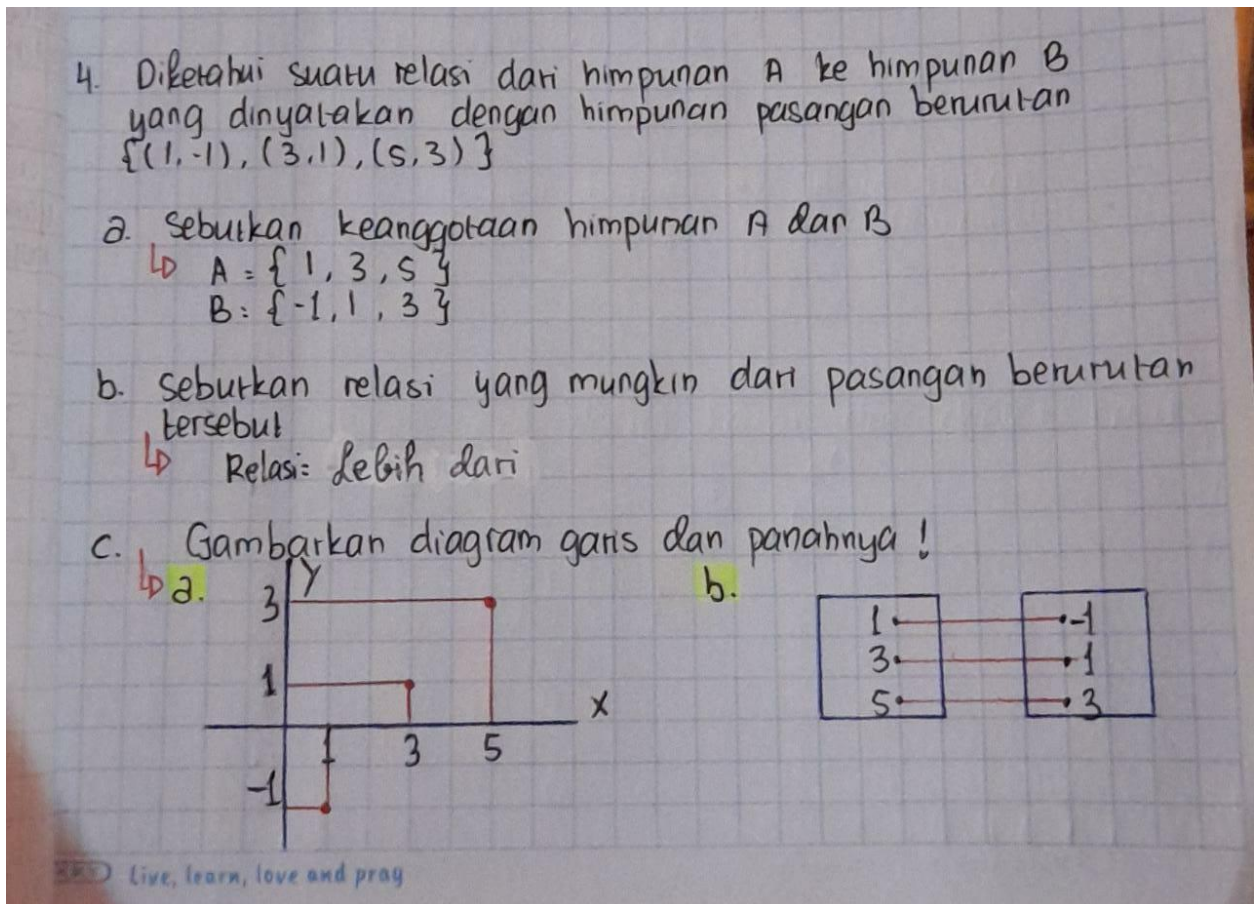 4. Diketahui suatu relasi dari himpunan A ke himpunan B
yang dinyatakan dengan himpunan pasangan berurutan
{(1,-1), (3,1), (5,3)}
a. Sebutkan keanggotaan himpunan A dan B
A = {1, 3, 5}
B = {-1, 1, 3}
b. Sebutkan relasi yang mungkin dari pasangan berurutan
tersebut
Relasi = Lebih dari
c. Gambarkan diagram garis dan panahnya !
a.
y
3
1
x
1 3 5
-1
b.
1 -1
3 1
5 3
Live, learn, love and pray